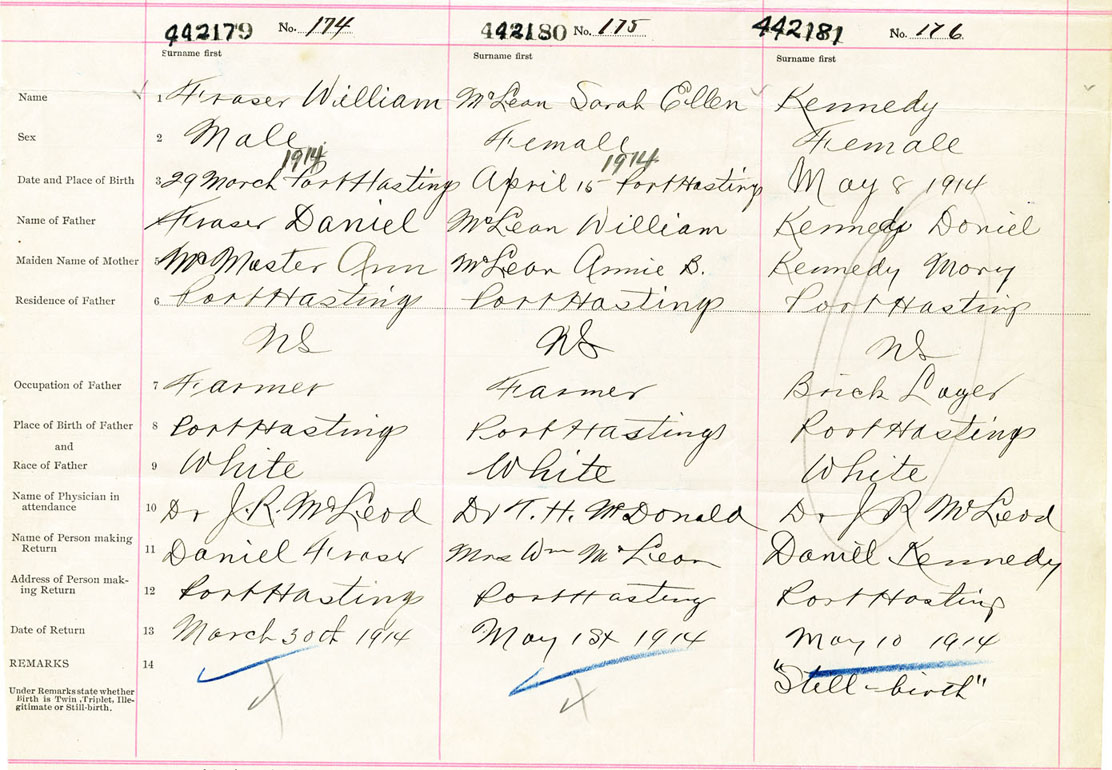 442179 No. 174 442180 No. 175 442181 No. 176
Surname first Surname first Surname first
Name 1 Fraser William McLean Sarah Ellen Kennedy
Sex 2 Male Female Female
1914 1914
Date and Place of Birth 3 29 March Port Hastings April 15 Port Hastings May 8 1914
Name of Father Fraser Daniel McLean William Kennedy Daniel
Maiden Name of Mother 5 McMaster Ann McLean Annie B. Kennedy Mary
Residence of Father 6 Port Hastings Port Hastings Port Hastings
NS NS NS
Occupation of Father 7 Farmer Farmer Brick Layer
Place of Birth of Father 8 Port Hastings Port Hastings Port Hastings
and
Race of Father 9 White White White
Name of Physician in
attendance 10 Dr J. R. McLeod Dr T. H. McDonald Dr J R McLeod
Name of Person making
Return 11 Daniel Fraser Mrs Wm McLean Daniel Kennedy
Address of Person mak-
ing Return 12 Port Hastings Port Hasting Port Hasting
Date of Return 13 March 30th 1914 May 1st 1914 May 10 1914
REMARKS 14
"Still-birth"
Under Remarks state whether
Birth is Twin, Triplet, Ille-
gitimate or Still-birth.